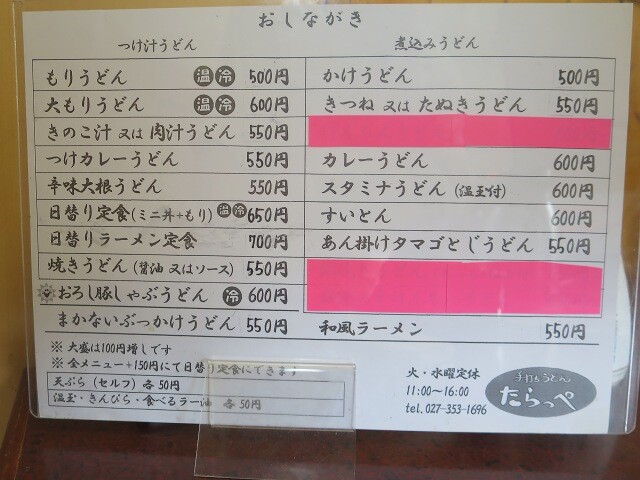 おしながき
つけ汁うどん
もりうどん 温 冷 500円
大もりうどん 温 冷 600円
きのこ汁 又は 肉汁うどん 550円
つけカレーうどん 550円
辛味大根うどん 550円
日替り定食(ミニ丼+もり) 温 冷 650円
日替りラーメン定食 700円
焼きうどん(醤油 又はソース) 550円
おろし豚しゃぶうどん 冷 600円
まかないぶっかけうどん 550円
※ 大盛は100円増しです
※ 全メニュー+150円にて日替り定食にできます
天ぷら(セルフ)各50円
温玉・きんぴら・食べるラー油 各50円
煮込みうどん
かけうどん 500円
きつね 又は たぬきうどん 550円
カレーうどん 600円
スタミナうどん(温玉付) 600円
すいとん 600円
あん掛けタマゴとじうどん 550円
和風ラーメン 550円
火・水曜定休
11:00～16:00
tel.027-353-1696
手打ちうどん
たらっぺ